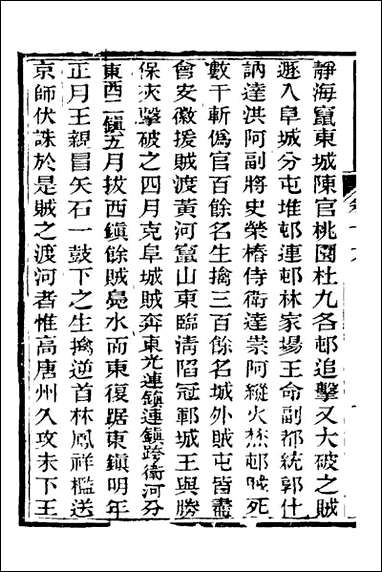 靜海竄東城陳官桃園杜九各邨追擊又大破之賊
遂入阜城分屯堆邨連邨林家場王命副都統郭什
訥達洪阿副將史榮椿侍衛達崇阿縱火焚邨賊死
數千斬僞官百餘名生擒三百餘名城外賊屯皆盡
會安徽援賊渡黃河竄山東臨淸陷冠鄆城王與勝
保夾擊破之四月克阜城賊奔東光連鎭連鎭跨衛河分
東西二鎭五月拔西鎭餘賊鳧水而東復踞東鎭明年
正月王親冒矢石一鼓下之生擒逆首林鳳祥檻送
京師伏誅於是賊之渡河者惟高唐州久攻未下王